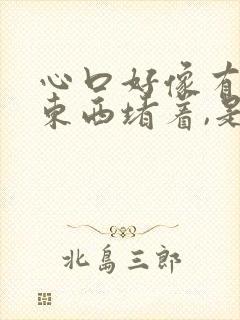 心口好像有
东西堵着,是
北島三郎